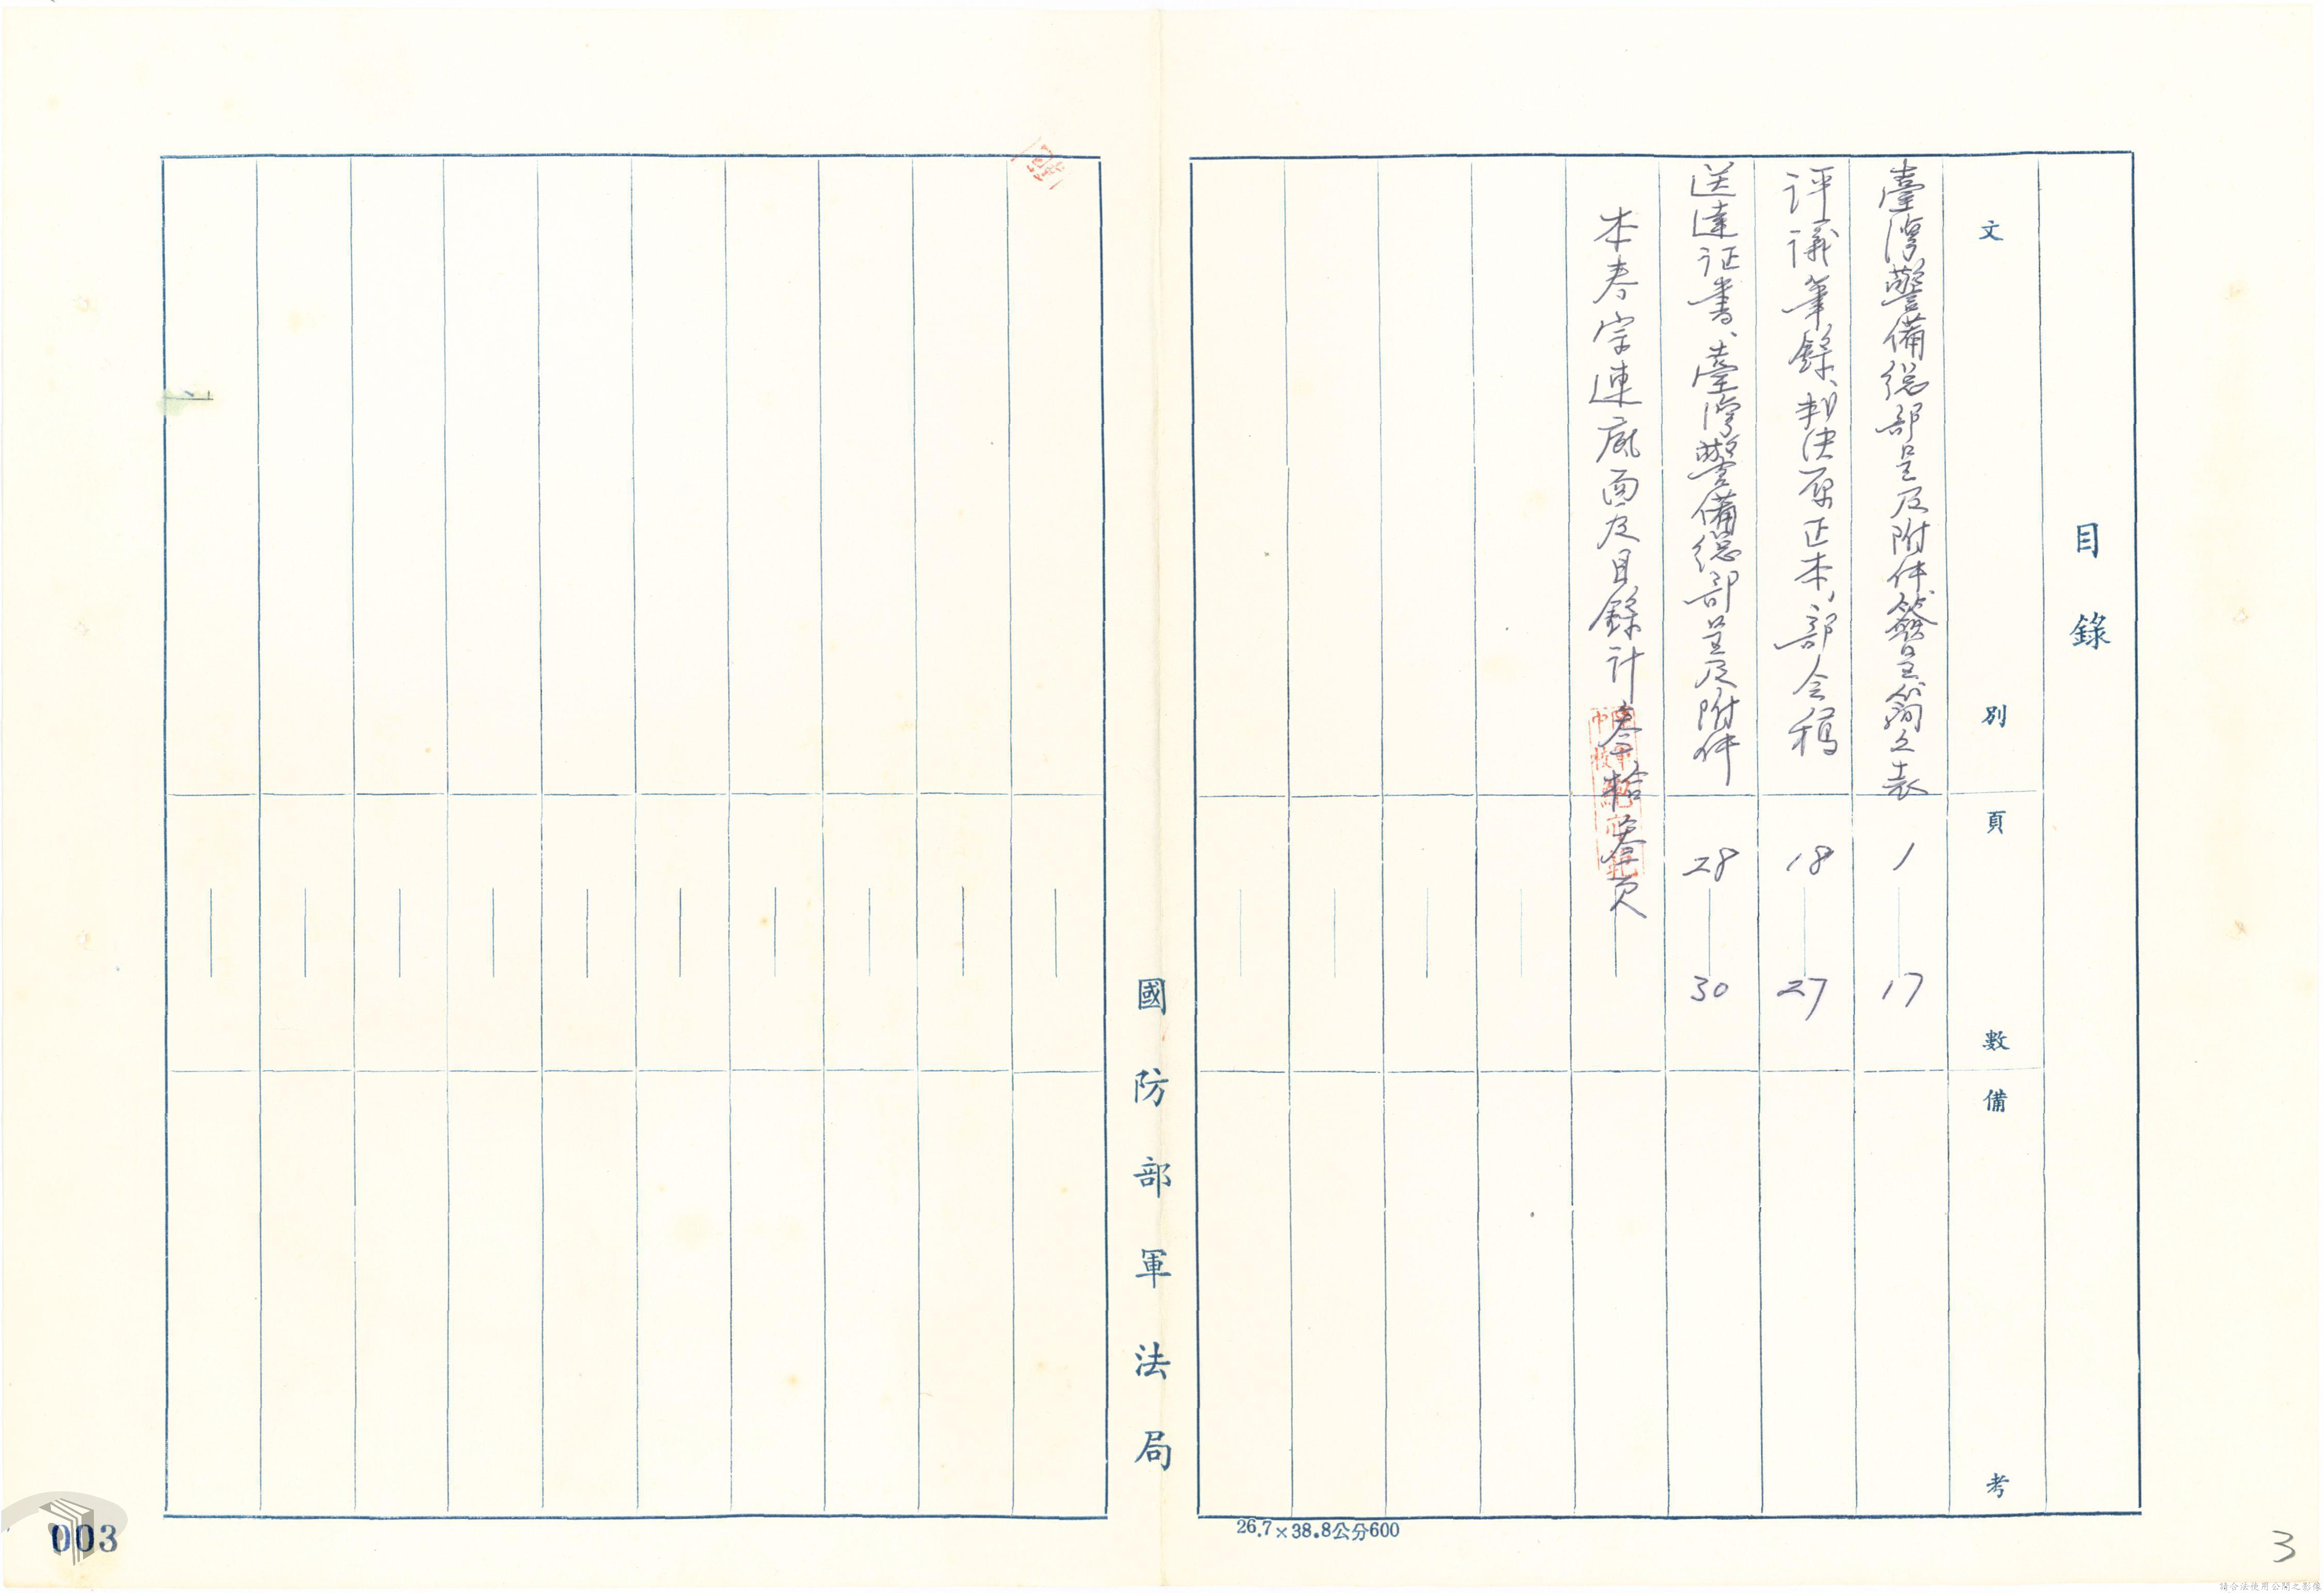 目錄
文別 頁數 備考
臺灣警備總部呈及附件簽呈簡之表 1—17
評議筆錄、判決原正本、部会稿 18—27
送達证書、臺灣警備總部呈及附件 28—30
本卷宗連底面及目錄計叁拾叁頁
國防部軍法局
26.7×38.8公分600
3
003
請合法使用公開之影像